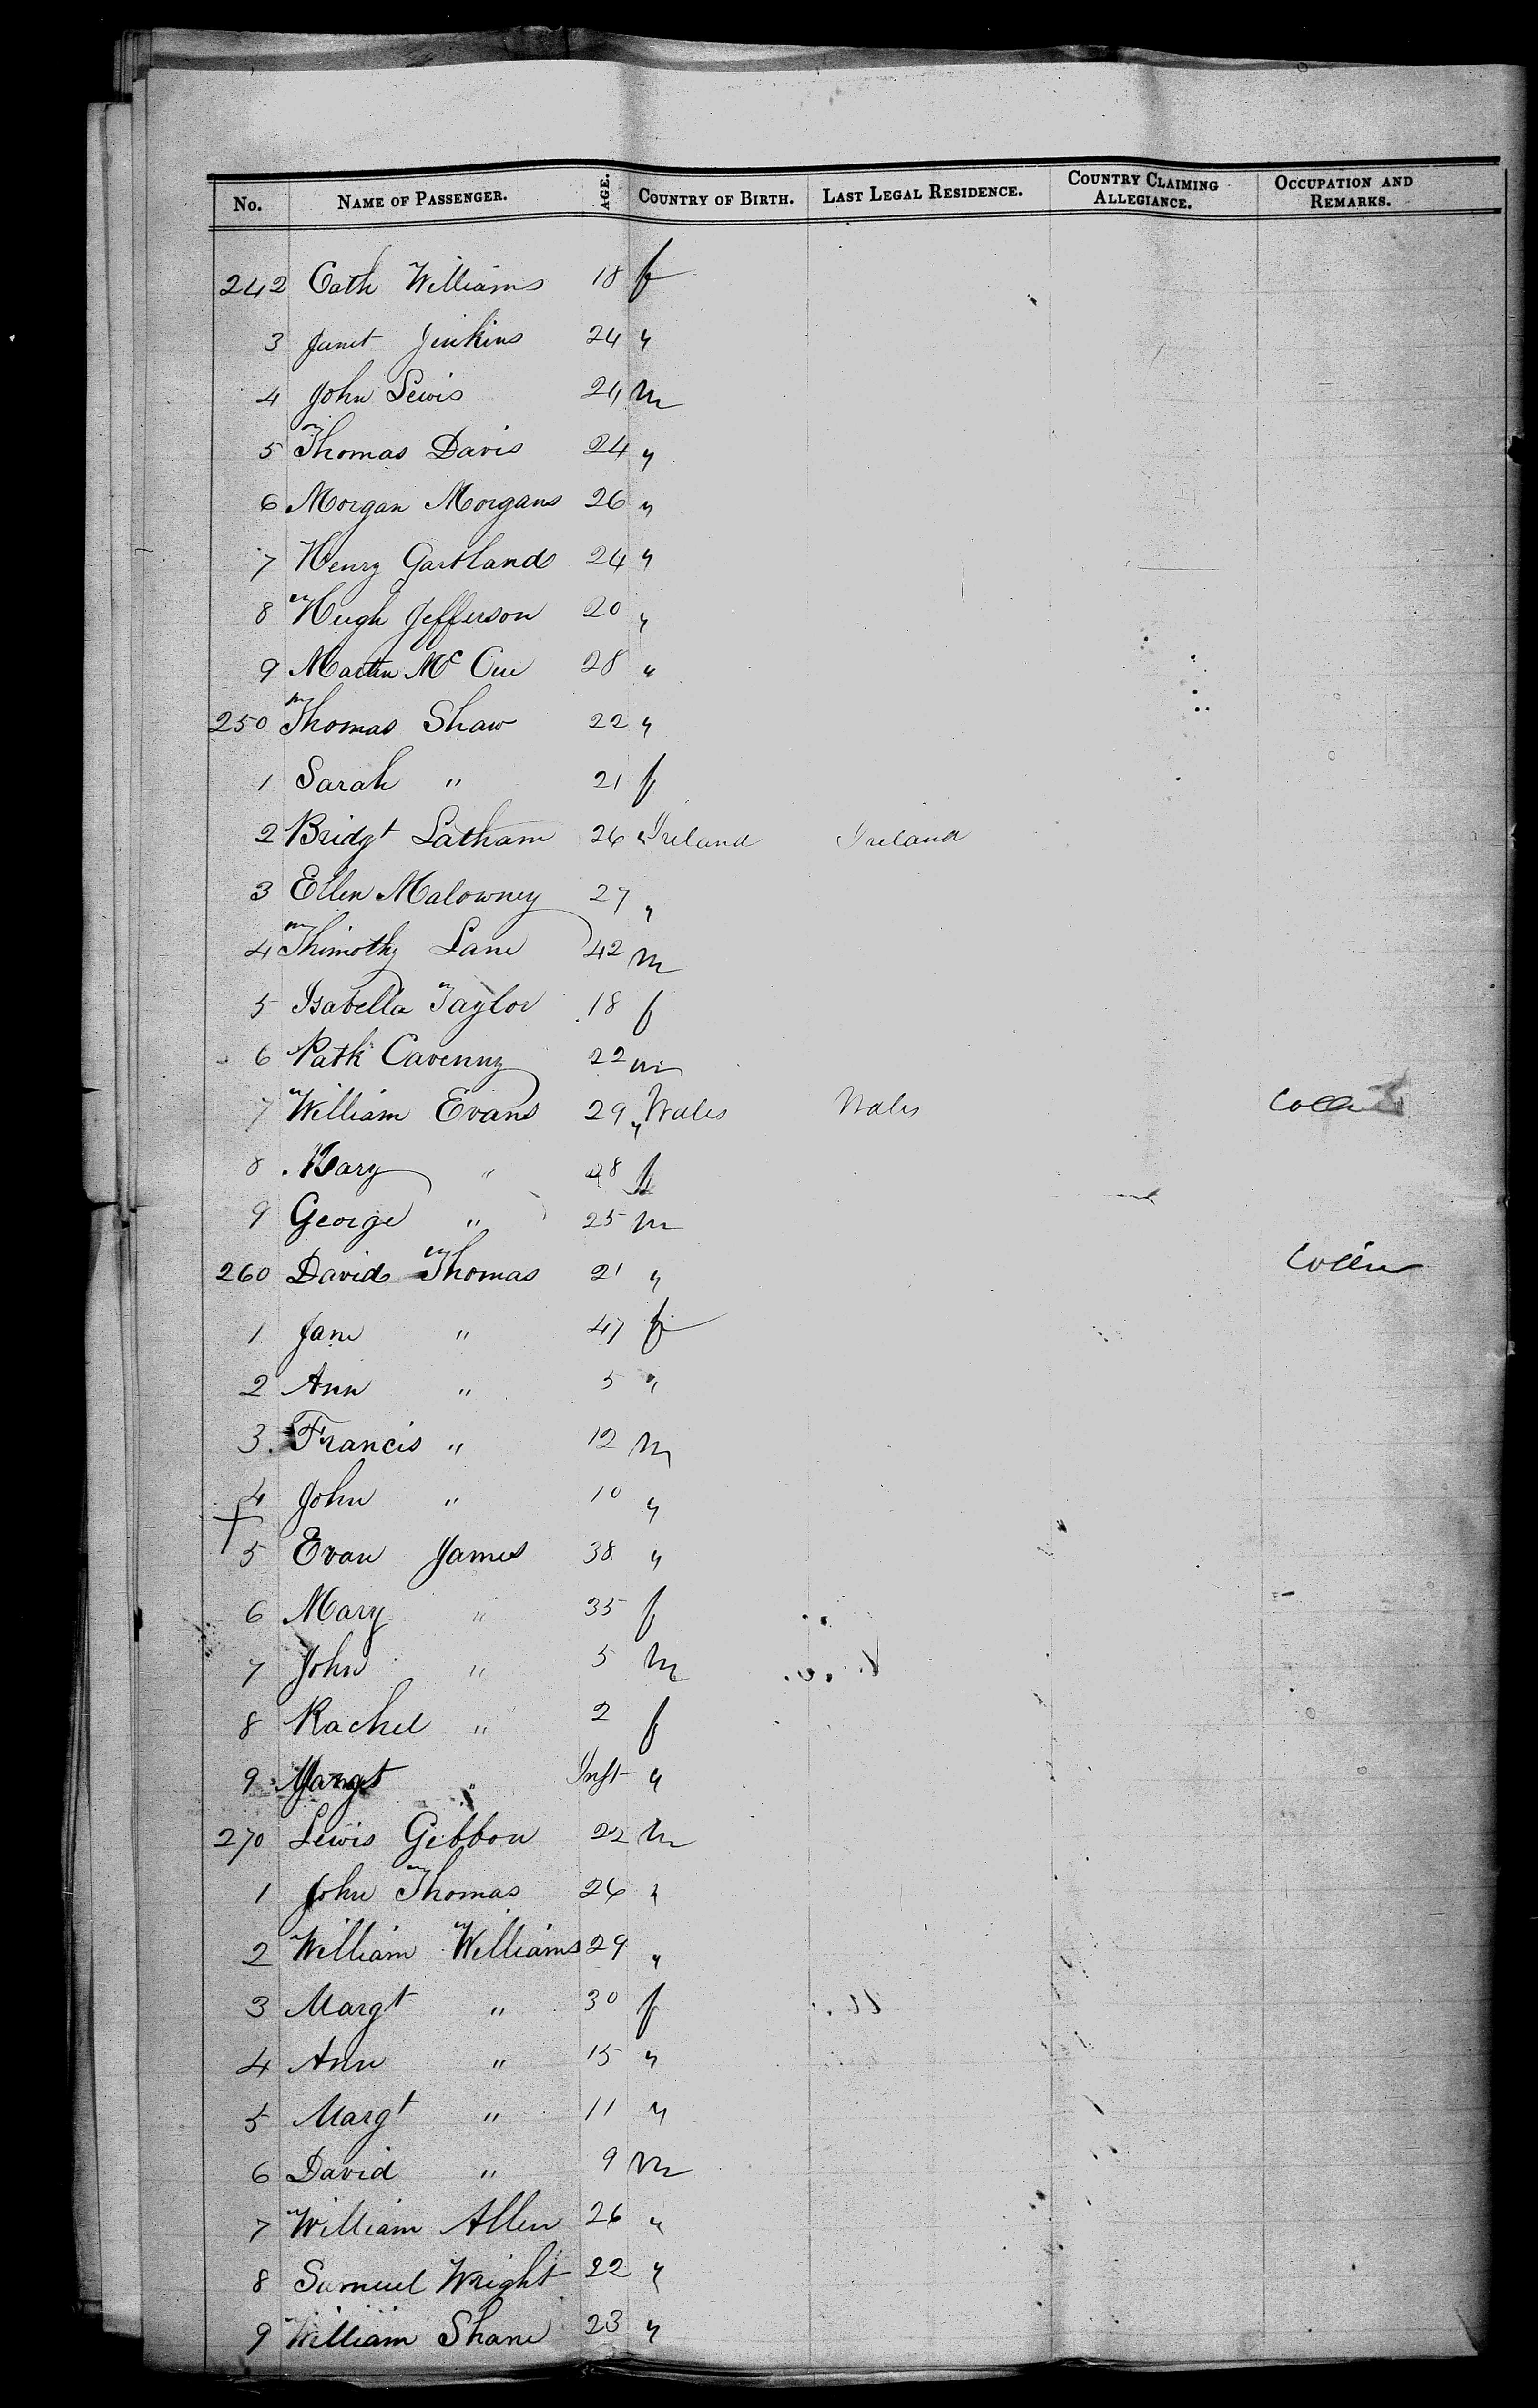 No. NAME OF PASSENGER. AGE. COUNTRY OF BIRTH. LAST LEGAL RESIDENCE. COUNTRY CLAIMING ALLEGIANCE. OCCUPATION AND REMARKS.
242 Cath Williams 18 f
3 Janet Jenkins 24 "
4 John Lewis 24 m
5 Thomas Davis 24 "
6 Morgan Morgans 26 "
7 Henry Gartland 24 "
8 Hugh Jefferson 20 "
9 Martin Mc Cue 28 "
250 Thomas Shaw 22 "
1 Sarah " 21 f
2 Bridgt Latham 26 " Ireland Ireland
3 Ellen Malowney 27 "
4 Thimothy Lane 42 m
5 Isabella Taylor 18 f
6 Patk Cavenny 22 m
7 William Evans 29 " Wales Wales
8 Mary " 28 f
9 George " 25 m
260 David Thomas 21 "
1 Jane " 47 f
2 Ann " 5 "
3 Francis " 12 m
4 John " 10 "
5 Evan James 38 "
6 Mary " 35 f
7 John " 5 m
8 Rachel " 2 f
9 Margt " Inft "
270 Lewis Gibbon 22 m
1 John Thomas 26 "
2 William Williams 29 "
3 Margt " 30 f
4 Ann " 15 "
5 Margt " 11 "
6 David " 9 m
7 William Allen 26 "
8 Samuel Wright 22 "
9 William Shane 23 "